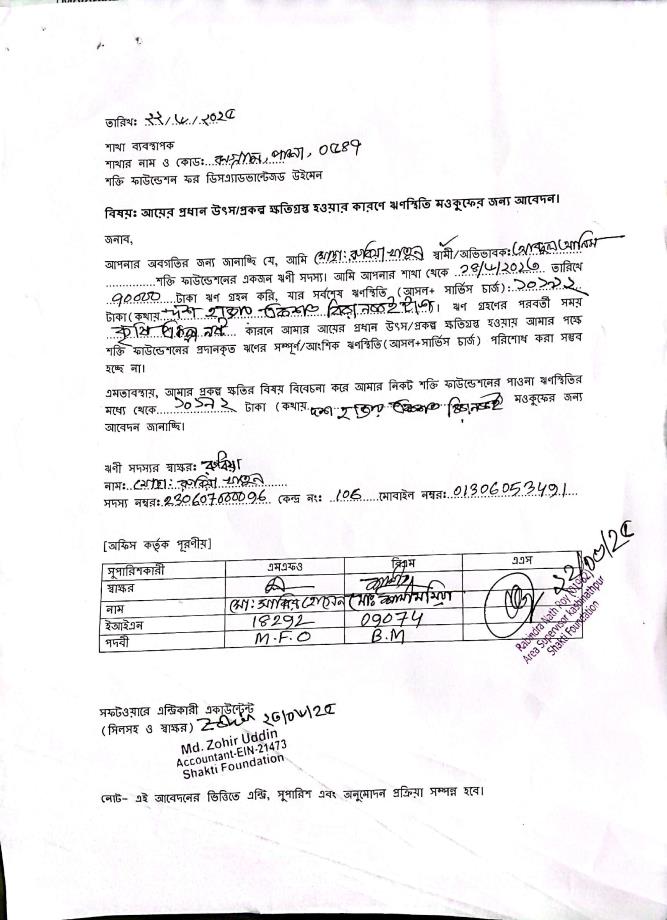 তারিখঃ ২২/৮/২০২৫
শাখা ব্যবস্থাপক
শাখার নাম ও কোডঃ পাবনা, ০৫৪৭
শক্তি ফাউন্ডেশন ফর ডিসএ্যাডভান্টেজড উইমেন
বিষয়ঃ আয়ের প্রধান উৎস/প্রকল্প ক্ষতিগ্রস্ত হওয়ার কারণে ঋণস্থিতি মওকুফের জন্য আবেদন।
জনাব,
আপনার অবগতির জন্য জানাচ্ছি যে, আমি মোছা: রুবিয়া খাতুন স্বামী/অভিভাবক:
শক্তি ফাউন্ডেশনের একজন ঋণী সদস্য। আমি আপনার শাখা থেকে তারিখে
৭০০০০ টাকা ঋণ গ্রহন করি, যার সর্বশেষ ঋণস্থিতি (আসল+ সার্ভিস চার্জ): ১০১৯২
টাকা(কথায় দশ হাজার একশত বিরানব্বই টাকা)। ঋণ গ্রহণের পরবর্তী সময়
কৃষি প্রকল্প নষ্ট কারনে আমার আয়ের প্রধান উৎস/প্রকল্প ক্ষতিগ্রস্ত হওয়ায় আমার পক্ষে
শক্তি ফাউন্ডেশনের প্রদানকৃত ঋণের সম্পূর্ণ/আংশিক ঋণস্থিতি(আসল+সার্ভিস চার্জ) পরিশোধ করা সম্ভব
হচ্ছে না।
এমতাবস্থায়, আমার প্রকল্প ক্ষতির বিষয় বিবেচনা করে আমার নিকট শক্তি ফাউন্ডেশনের পাওনা ঋণস্থিতির
মধ্যে থেকে ১০১৯২ টাকা (কথায় দশ হাজার একশত বিরানব্বই মওকুফের জন্য
আবেদন জানাচ্ছি।
ঋণী সদস্যের স্বাক্ষরঃ রুবিয়া
নামঃ মোছা: রুবিয়া খাতুন
সদস্য নম্বরঃ 230607000096 কেন্দ্র নং: 106 মোবাইল নম্বরঃ 01306053491
[অফিস কর্তৃক পূরণীয়]
সুপারিশকারী এমএফও বিএম এএস
স্বাক্ষর
নাম মো: হোসেন মোঃ মিয়া
ইআইএন 18292 09074
পদবী M.F.O B.M
২২/০৮/২৫
Rabindra Nath Roy
Area Supervisor
Shakti Foundation
সফটওয়ারে এন্ট্রিকারী একাউন্টেন্ট
(সিলসহ ও স্বাক্ষর) Zohir ২৩/০৮/২৫
Md. Zohir Uddin
Accountant-EIN-21473
Shakti Foundation
নোট- এই আবেদনের ভিত্তিতে এন্ট্রি, সুপারিশ এবং অনুমোদন প্রক্রিয়া সম্পন্ন হবে।